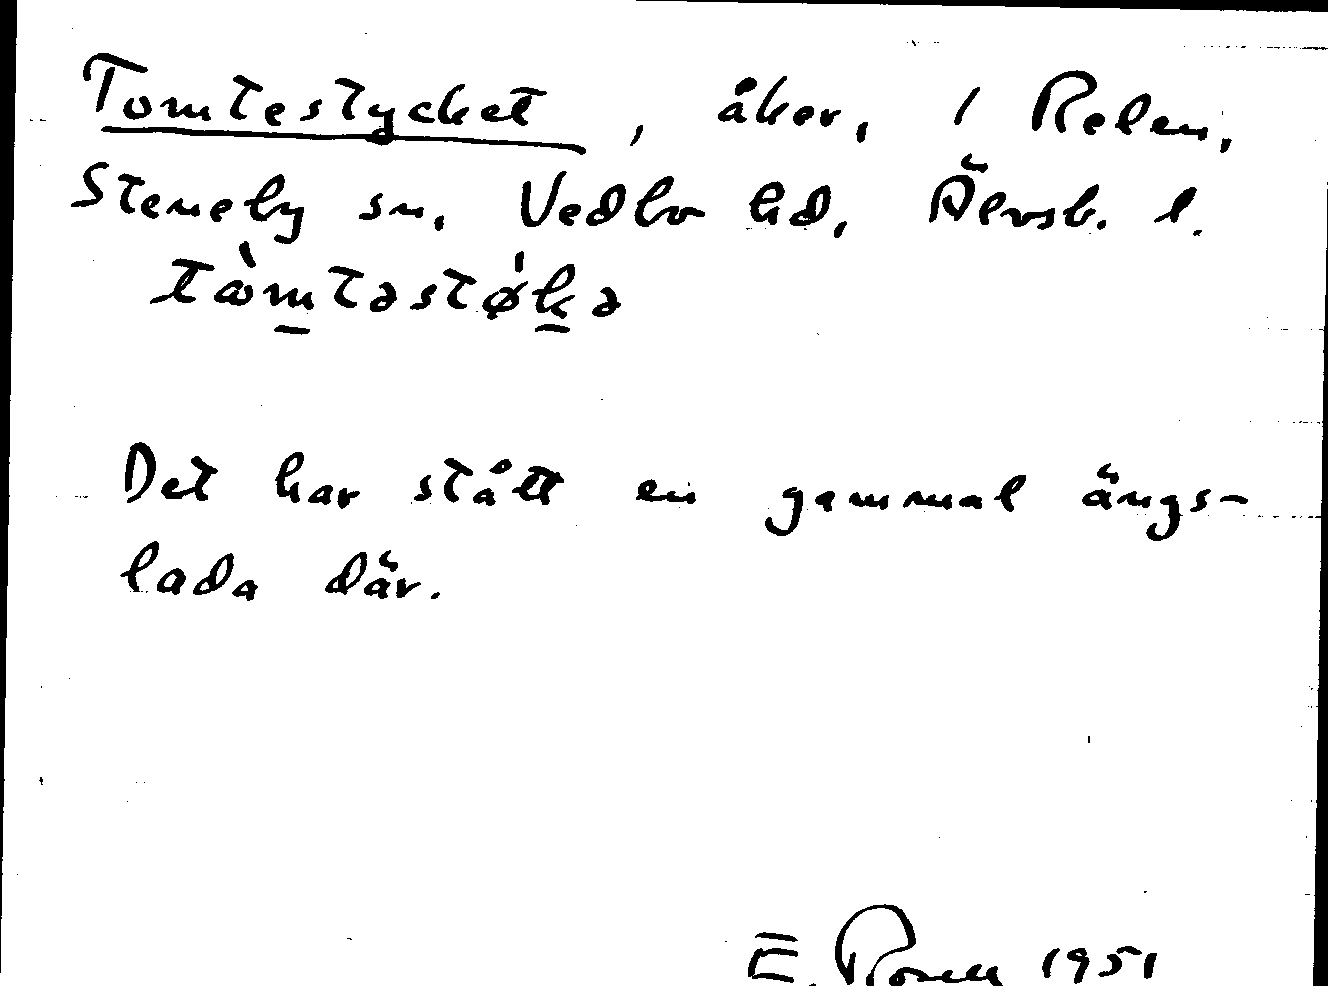 Tomtestycket, åker, 1 Relen,
Steneby sn, Vedbo hd, Älvsb. l.
tòmtəstø̍kə
Det har stått en gammal ängs-
lada där.
E. Rosell 1951